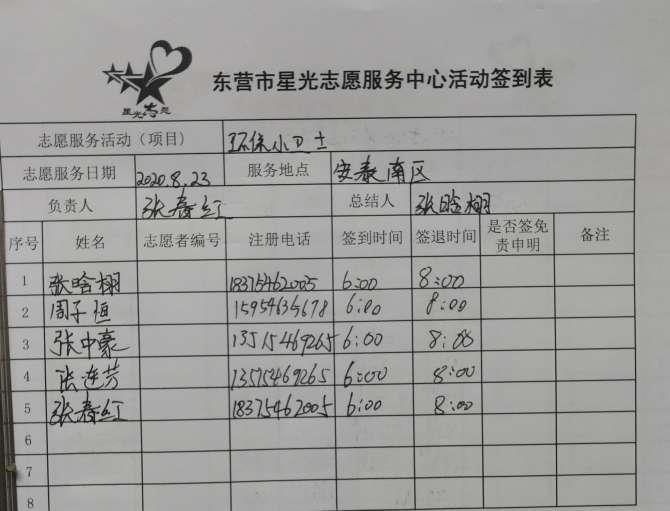 星光志愿
东营市星光志愿服务中心活动签到表
志愿服务活动（项目） 环保小卫士
志愿服务日期 2020.8.23 服务地点 安泰南区
负责人 张春红 总结人 张晗栩
序号 姓名 志愿者编号 注册电话 签到时间 签退时间 是否签免责申明 备注
1 张晗栩 18375462005 6:00 8:00
2 周子恒 15954634678 6:00 8:00
3 张中豪 13515469265 6:00 8:00
4 张连芳 13515469265 6:00 8:00
5 张春红 18375462005 6:00 8:00
6
7
8